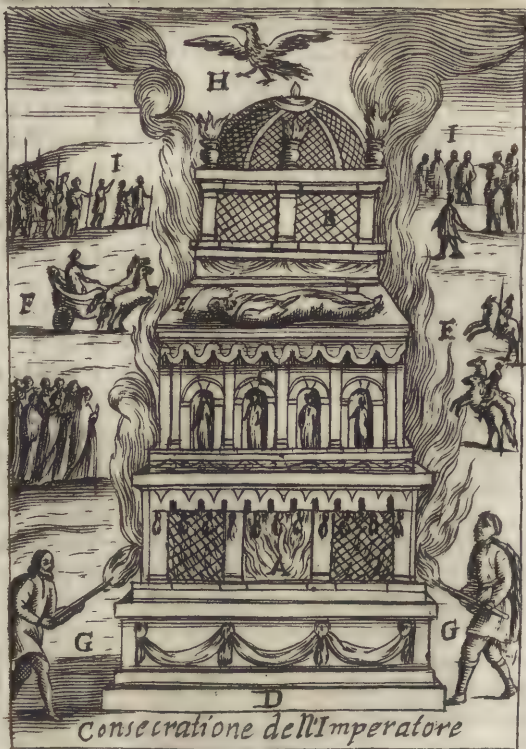 H
I I
B
F
E
A
G G
D
Consecratione dell'Imperatore